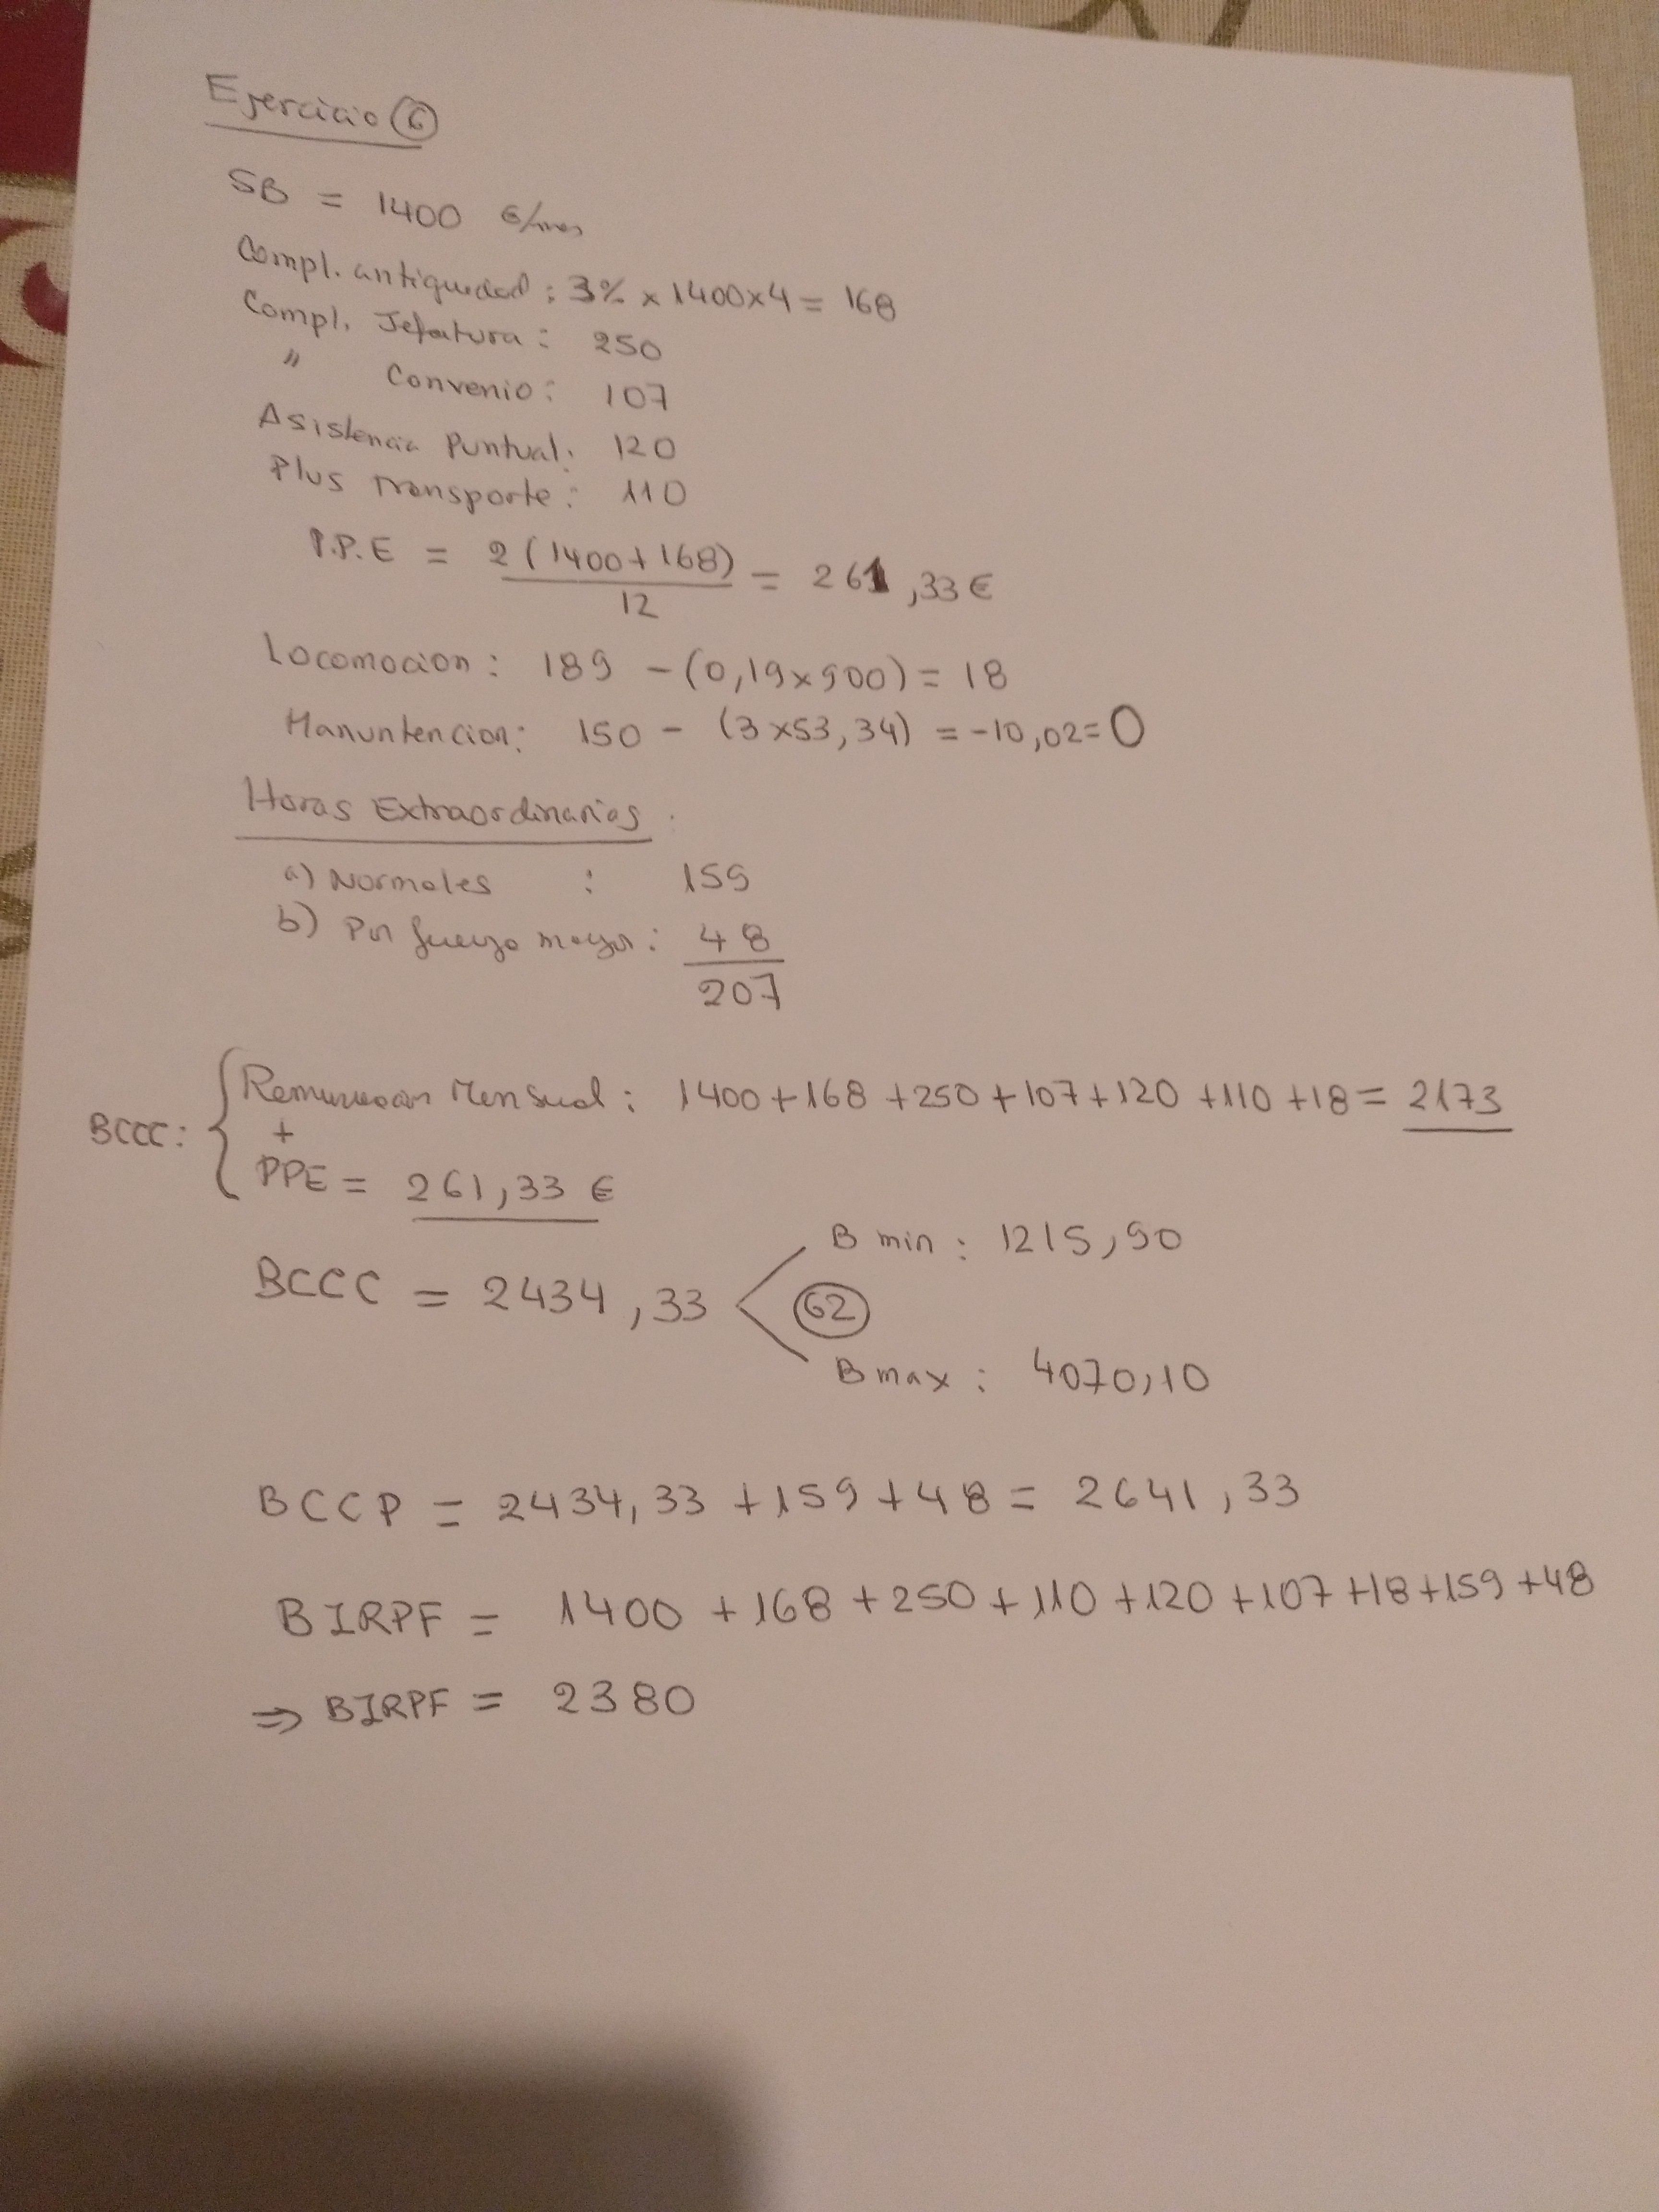 Ejercicio ⑥
SB = 1400 €/mes
Compl. antiguedad : 3% x 1400x4 = 168
Compl. Jefatura : 250
" Convenio : 107
Asistencia Puntual : 120
Plus Transporte : 110
P.P.E = 2(1400+168)/12 = 261,33 €
Locomocion : 189 - (0,19x900) = 18
Manuntencion : 150 - (3x53,34) = -10,02=0
Horas Extraordinarias.
a) Normales : 159
b) Por fuerza mayor : 48
207
BCCC: { Remuneracion Mensual : 1400+168+250+107+120+110+18= 2173
+
PPE = 261,33 €
B min : 1215,90
BCCC = 2434,33 < (62)
B max : 4070,10
BCCP = 2434,33 +159+48 = 2641,33
BIRPF = 1400 +168+250+110+120+107+18+159+48
⇒ BIRPF = 2380